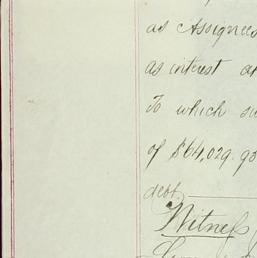 as Assignees
as interest
To which
of $64,029.90
debt
Witness